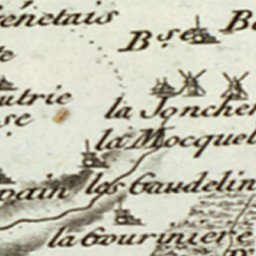 énetais
Bse
utrie
se
la Jonche
la Mocque
pain
les Gaudelin
la Gouriniere